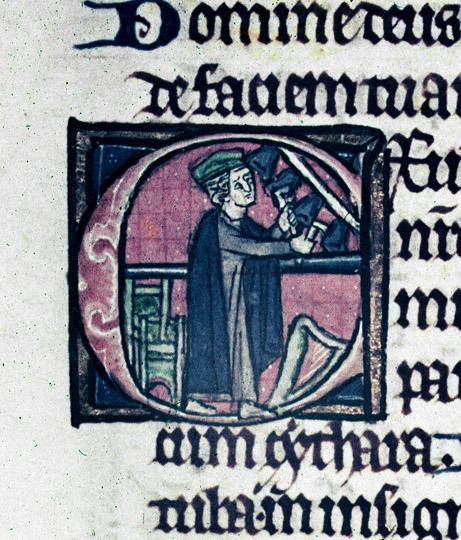 Domine deus
de faciem tua
E xu
nr̄
cum cythara.
tuba·in insig